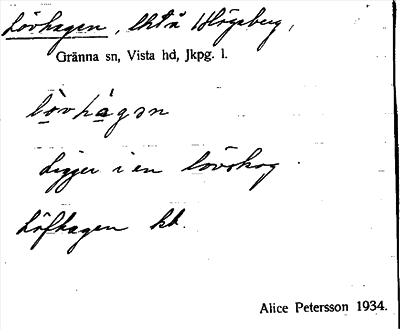 Lövhagen, lht å Högaberg,
Gränna sn, Vista hd, Jkpg. l.
lòvhàgən
Ligger i en lövskog.
Löfhagen kb.
Alice Petersson 1934.